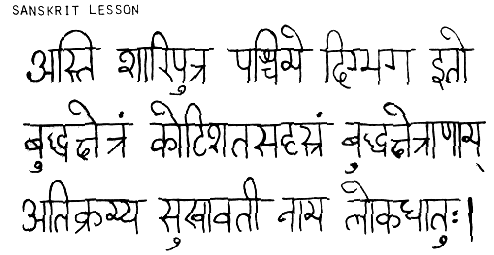 SANSKRIT LESSON
अस्ति शारिपुत्र पश्चिमे दिग्भाग इतो
बुद्धक्षेत्रं कोटिशतसहस्रं बुद्धक्षेत्राणाम्
अतिक्रम्य सुखावती नाम लोकधातुः।